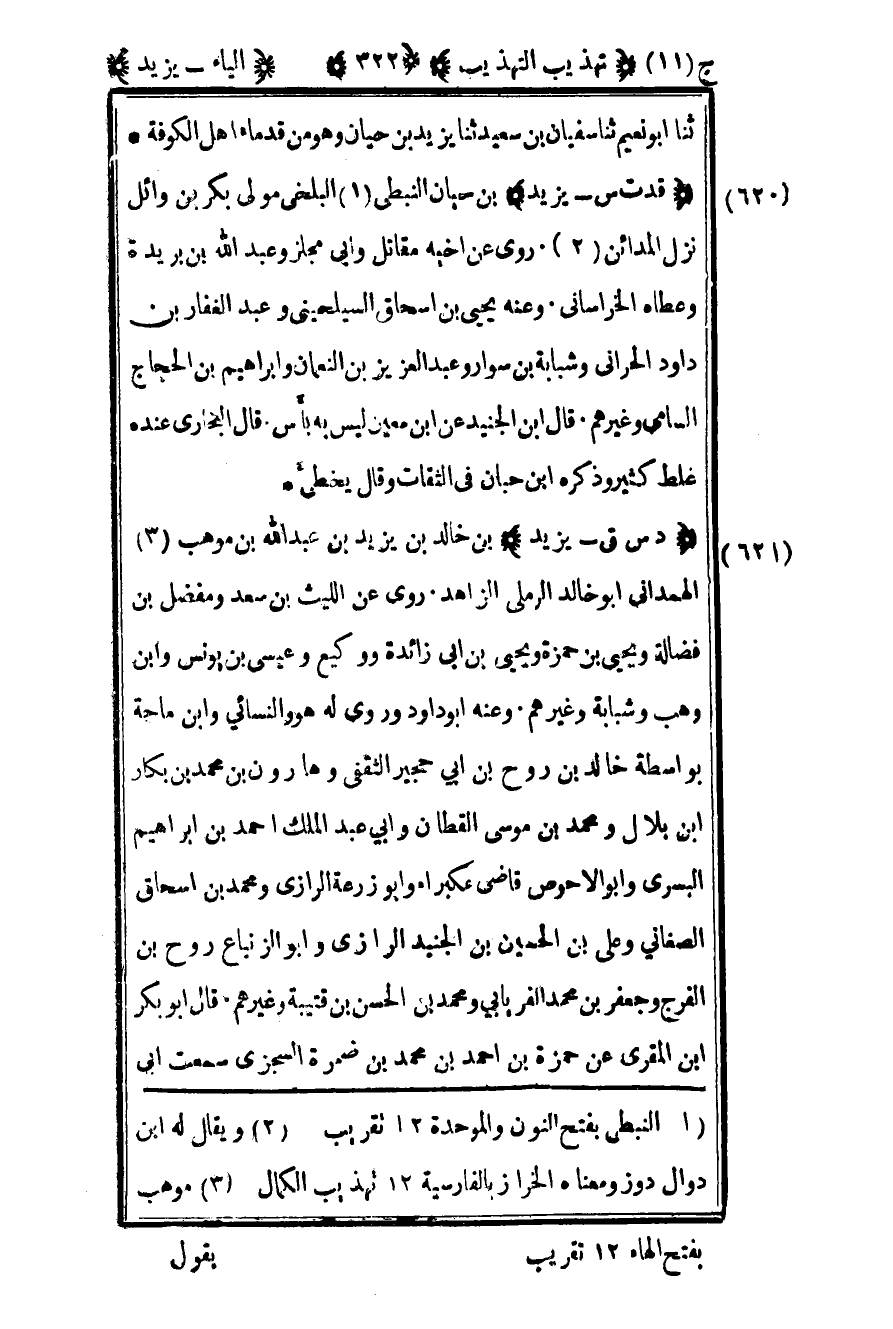 ج (١١) ﴿ تهذيب التهذيب ﴾ ﴿٣٢٢﴾ ﴿ الياء ــ يزيد ﴾
ثنا ابو نعيم ثنا سفيان بن سعيد ثنا يزيد بن حيان وهو من قدماء اهل الكوفة *
(٦٢٠) ﴿ قدت س ــ يزيد ﴾ بن حيان النبطى (١) البلخى مولى بكر بن وائل
نزل المدائن (٢) · روى عن اخيه مقاتل وابى مجلز وعبد الله بن بريدة
وعطاء الخراسانى · وعنه يحيى بن اسحاق السيلحينى و عبد الغفار بن
داود الحرانى وشبابة بن سوار وعبد العزيز بن النعمان وابراهيم بن الحجاج
السامى وغيرهم · قال ابن الجنيد عن ابن معين ليس به بأس · قال البخارى عنده
غلط كثير وذكره ابن حبان فى الثقات وقال يخطئ *
(٦٢١) ﴿ د س ق ــ يزيد ﴾ بن خالد بن يزيد بن عبد الله بن موهب (٣)
الهمداني ابو خالد الرملى الزاهد · روى عن الليث بن سعد ومفضل بن
فضالة ويحيى بن حمزة ويحيى بن ابى زائدة ووكيع وعيسى بن يونس وابن
وهب وشبابة وغيرهم · وعنه ابوداود وروى له هو والنسائي وابن ماجة
بواسطة خالد بن روح بن ابي حجير الثقفى وهارون بن محمد بن بكار
ابن بلال و محمد بن موسى القطان وابي عبد الملك احمد بن ابراهيم
البسرى وابوالاحوص قاضى عكبراء وابو زرعة الرازى ومحمد بن اسحاق
الصغاني وعلى بن الحسين بن الجنيد الرازى وابو الزنباع روح بن
الفرج وجعفر بن محمد الفريابي ومحمد بن الحسن بن قتيبة وغيرهم · قال ابو بكر
ابن المقرى عن حمزة بن احمد بن محمد بن ضمرة السجزى سمعت ابى
(١ النبطى بفتح النون والموحدة ١٢ تقريب (٢) ويقال له ابن
دوال دوز ومعناه الخراز بالفارسية ١٢ تهذيب الكمال (٣) موهب
بفتح الهاء ١٢ تقريب يقول